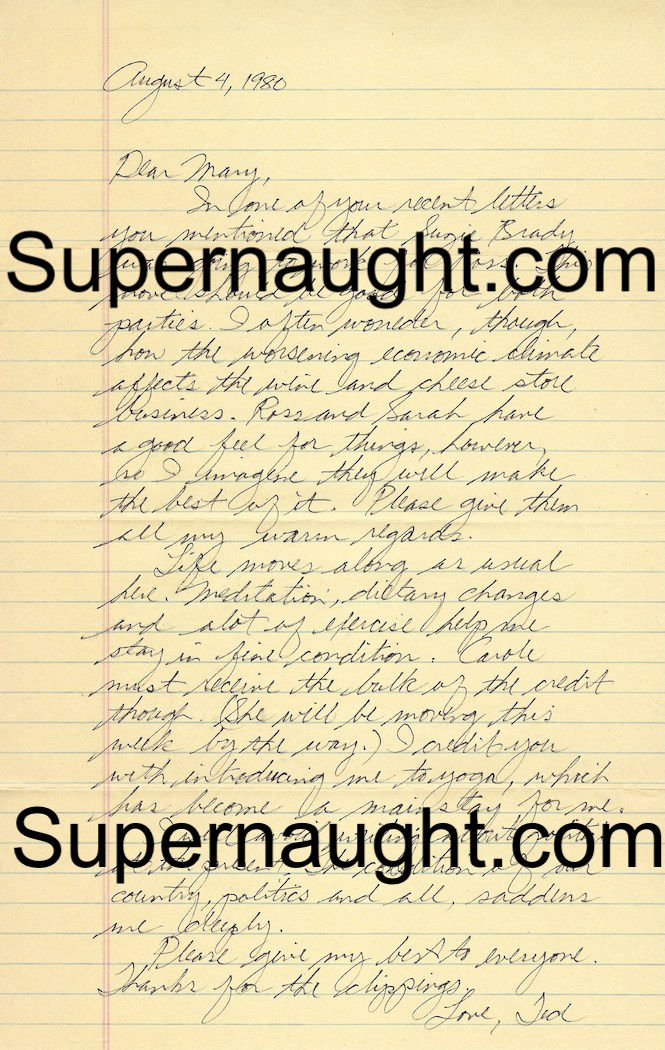 August 4, 1980
Dear Mary,
In one of your recent letters
you mentioned that Suzie Brady
Supernaught.com
was going to work for Ross. This
move should be good for both
parties. I often woneder, though,
how the worsening economic climate
affects the wine and cheese store
business. Ross and Sarah have
a good feel for things, however,
so I imagine they will make
the best of it. Please give them
all my warm regards.
Life moves along as usual
here. Meditation, dietary changes
and alot of exercise help me
stay in fine condition. Carole
must receive the bulk of the credit
though. (She will be moving this
week by the way.) I credit you
with introducing me to yoga, which
has become a mainstay for me.
Supernaught.com
I will avoid writing about politics
at the present. The condition of our
country, politics and all, saddens
me deeply.
Please give my best to everyone.
Thanks for the clippings.
Love, Ted